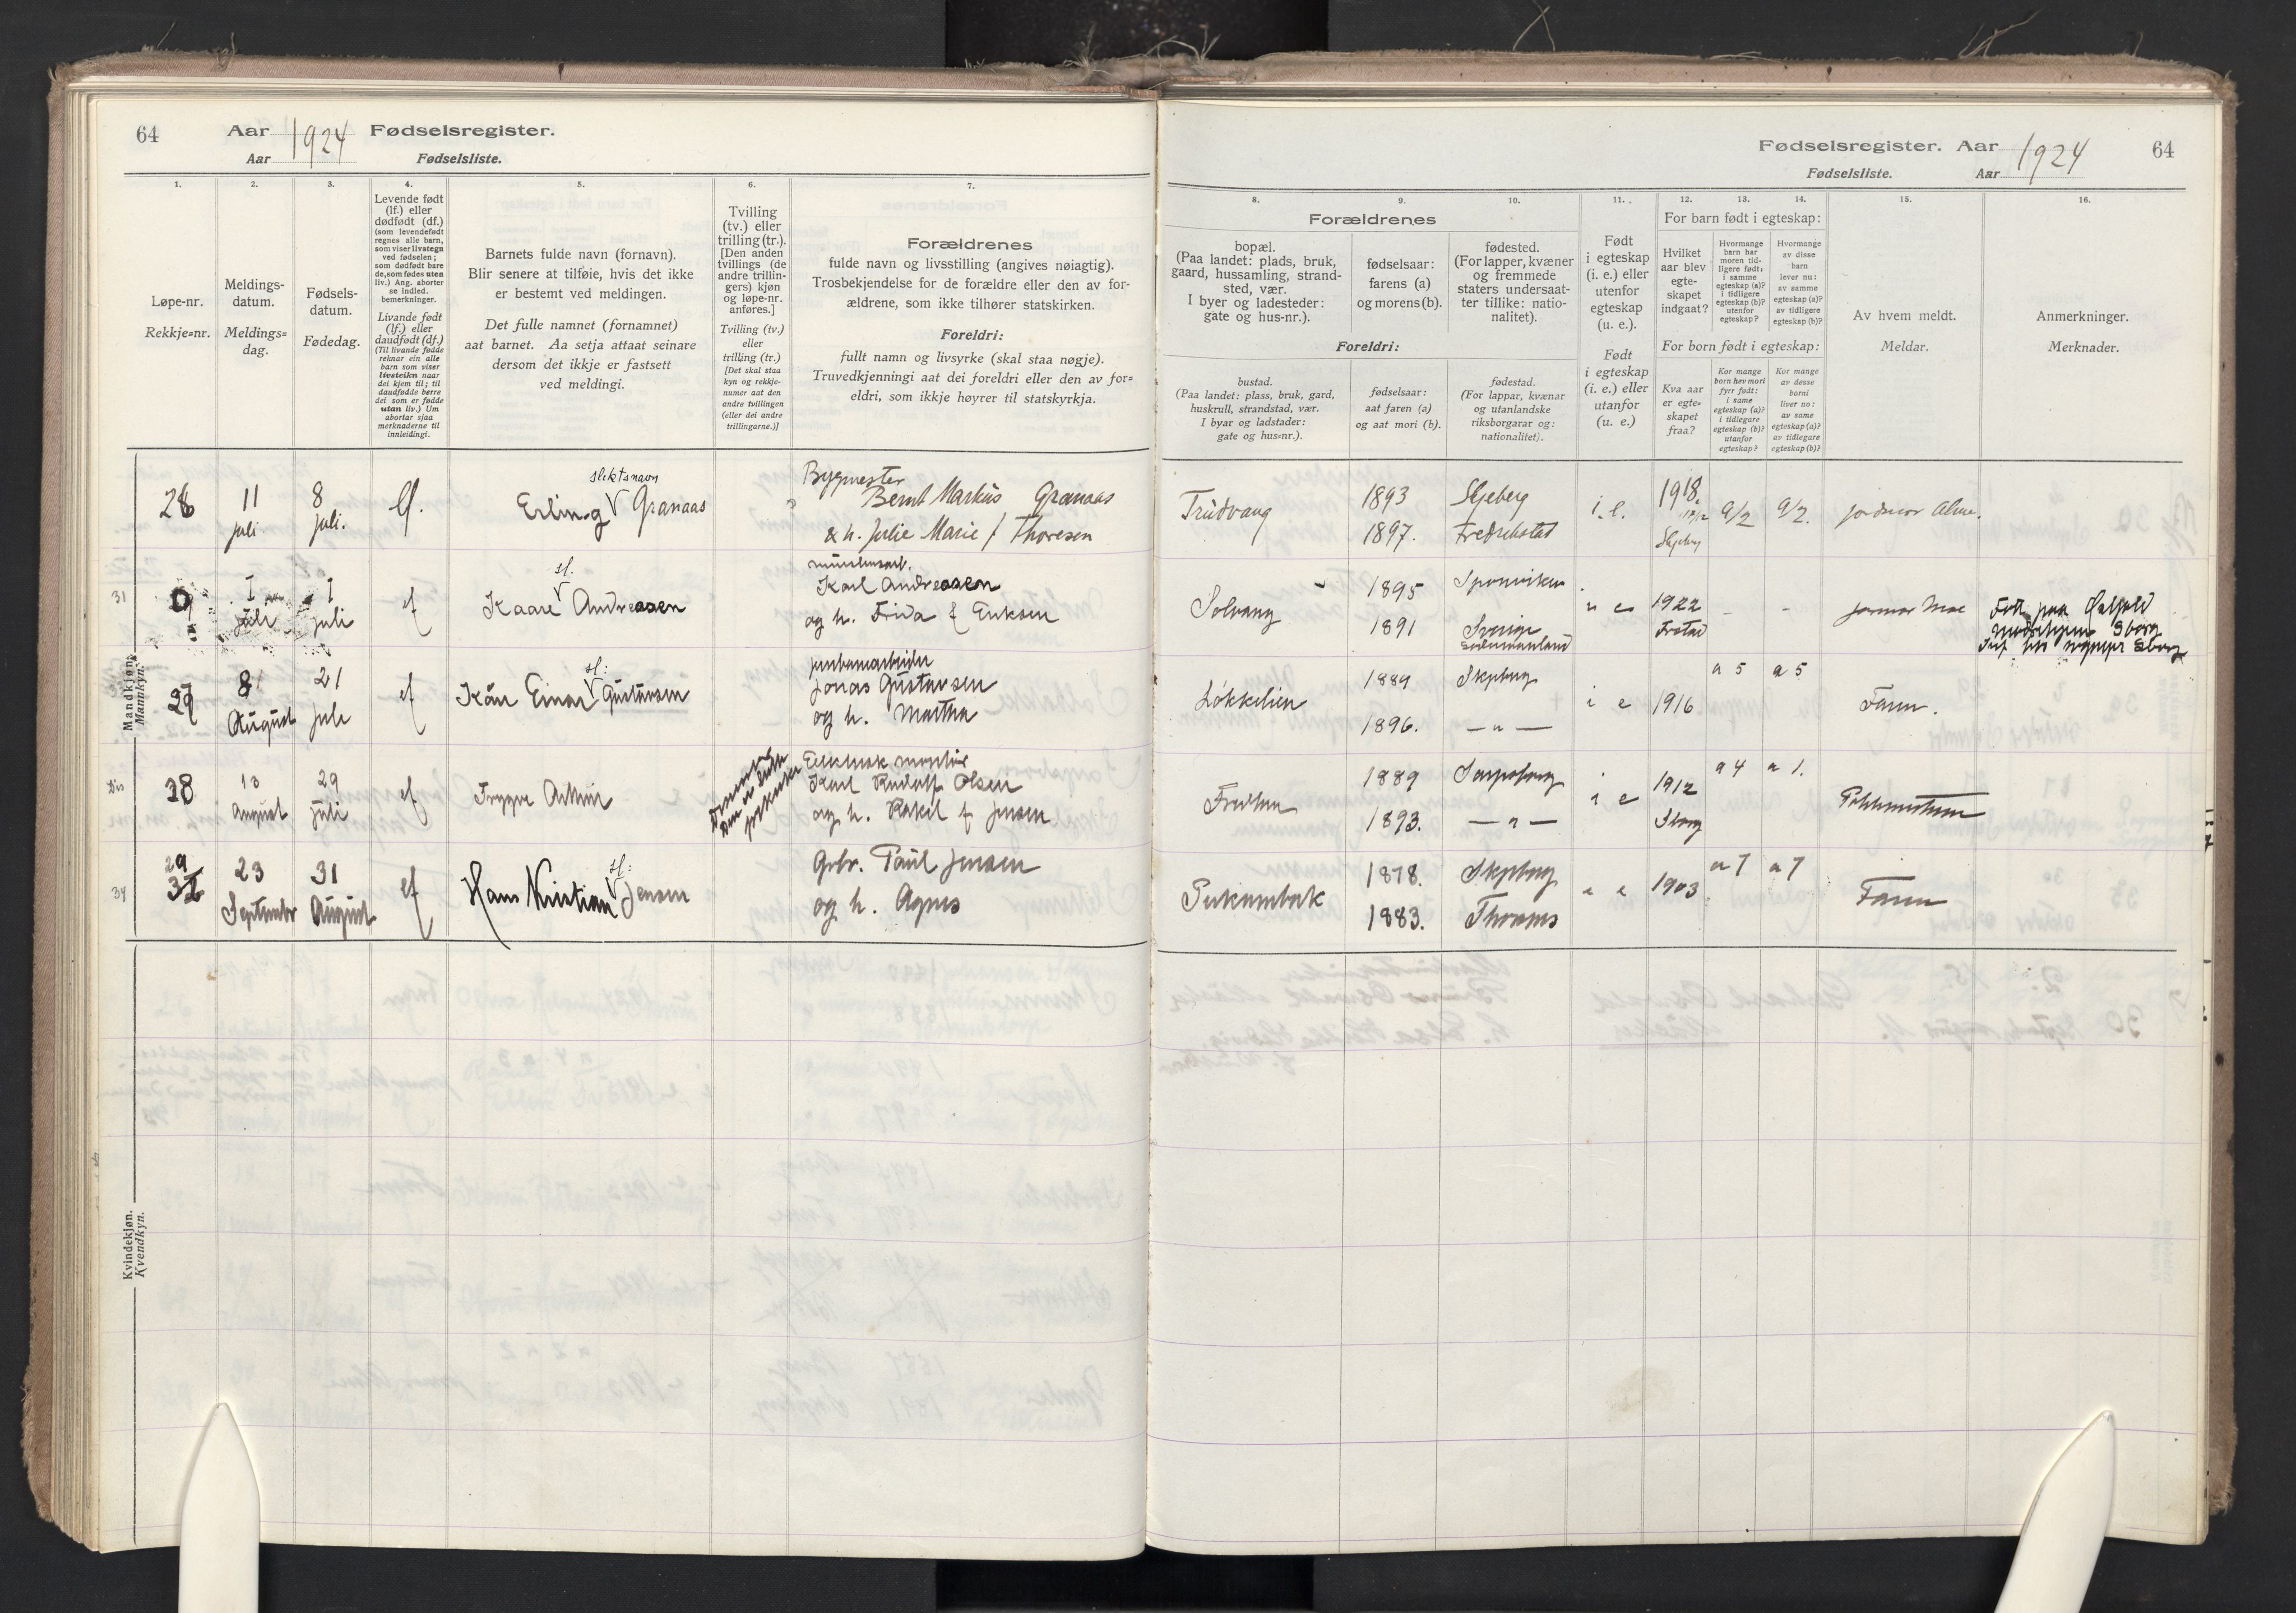 64 Aar 1924 Fødselsregister.
Aar Fødselsliste.
1. 2. 3. 4. 5. 6. 7.
Løpe-nr.
Rekkje=nr.
Meldings-
datum.
Meldings=
dag.
Fødsels-
datum.
Fødedag.
Levende født
(lf.) eller
dødfødt (df.)
(som levendefødt
regnes alle barn,
som viser livstegn
ved fødselen;
som dødfødt bare
de, som fødes uten
liv.) Ang. aborter
se indled.
bemerkninger.
Livande fødd
(lf.) eller
daudfødt (df.)
(Til livande fødde
reknar ein alle
barn som viser
livsteikn naar
dei kjem til; til
daudfødde berre
dei som er fødde
utan liv.) Um
abortar sjaa
merknaderne til
innleidingi.
Barnets fulde navn (fornavn).
Blir senere at tilføie, hvis det ikke
er bestemt ved meldingen.
Det fulle namnet (fornamnet)
aat barnet. Aa setja attaat seinare
dersom det ikkje er fastsett
ved meldingi.
Tvilling
(tv.) eller
trilling (tr.).
[Den anden
tvillings (de
andre trillin-
gers) kjøn
og løpe-nr.
anføres.]
Tvilling (tv.)
eller
trilling (tr.)
[Det skal staa
kyn og rekkje-
numer aat den
andre tvillingen
(eller dei andre
trillingarne.)]
Forældrenes
fulde navn og livsstilling (angives nøiagtig).
Trosbekjendelse for de forældre eller den av for-
ældrene, som ikke tilhører statskirken.
Foreldri:
fullt namn og livsyrke (skal staa nøgje).
Truvedkjenningi aat dei foreldri eller den av for=
eldri, som ikkje høyrer til statskyrkja.
Mandkjøn.
Mannkyn.
28 11 juli 8 juli. lf.
slektsnavn
Erling V Granaas
Bygmester
Bernt Markus Granaas
& h. Julie Marie f Thoresen
31 juli juli
sl.
Kaare V Andreasen
Karl Andreasen
og h. Frida f Eriksen
8 August 21 juli
sl:
Kåre Einar V Gustavsen
Jonas Gustavsen
og h. Martha
28 13 August 29 juli
Trygve Arthur
Karl Rudolf Olsen
og h. Rakel f Jensen
34 29 23 September 31 August
sl:
Hans Kristian V Jensen
Grbr. Paul Jensen
og h. Agnes
Kvindekjøn.
Kvendkyn.
Fødselsregister. Aar 1924 64
Fødselsliste. Aar
8. 9. 10. 11. 12. 13. 14. 15. 16.
Forældrenes
bopæl.
(Paa landet: plads, bruk,
gaard, hussamling, strand-
sted, vær.
I byer og ladesteder:
gate og hus-nr.).
fødselsaar:
farens (a)
og morens (b).
fødested.
(For lapper, kvæner
og fremmede
staters undersaat-
ter tillike: natio-
nalitet).
Foreldri:
bustad.
(Paa landet: plass, bruk, gard,
huskrull, strandstad, vær.
I byar og ladstader:
gate og hus=nr.).
fødselsaar:
aat faren (a)
og aat mori (b).
fødestad.
(For lappar, kvænar
og utanlandske
riksborgarar og:
nationalitet).
Født
i egteskap
(i. e.) eller
utenfor
egteskap
(u. e.).
Født
i egteskap
(i. e.) eller
utanfor
(u. e.)
For barn født i egteskap:
Hvilket
aar blev
egte-
skapet
indgaat?
Hvormange
barn har
moren tid-
ligere født:
i samme
egteskap (a)?
i tidligere
egteskap (b)?
utenfor
egteskap?
Hvormange
av disse
barn
lever nu:
av samme
egteskap (a)?
av tidligere
egteskap (b)?
For born født i egteskap:
Kva aar
er egte=
skapet
fraa?
Kor mange
born hev mori
fyrr født:
i same
egteskap (a)?
i tidlegare
egteskap (b)?
utanfor
egteskap?
Kor mange
av desse
borni
liver no:
av same
egteskap (a)?
av tidlegare
egteskap (b)?
Av hvem meldt.
Meldar.
Anmerkninger.
Merknader.
Trudvang 1893 Skjeberg i.e. 1918. a/2 a/2.
1897. Fredrikstad Skjeberg
Solvang 1895 1922 - -
1891 Sverige Frstad
Løkkelien 1889 Skjeberg i e 1916 a 5 a 5 Faren.
1896. — " —
1889 Sarpsborg i e 1912 a 4 a 1.
1893. — " — Sborg
1878. Skjeberg i e 1903 a 7 a 7 Faren
1883.